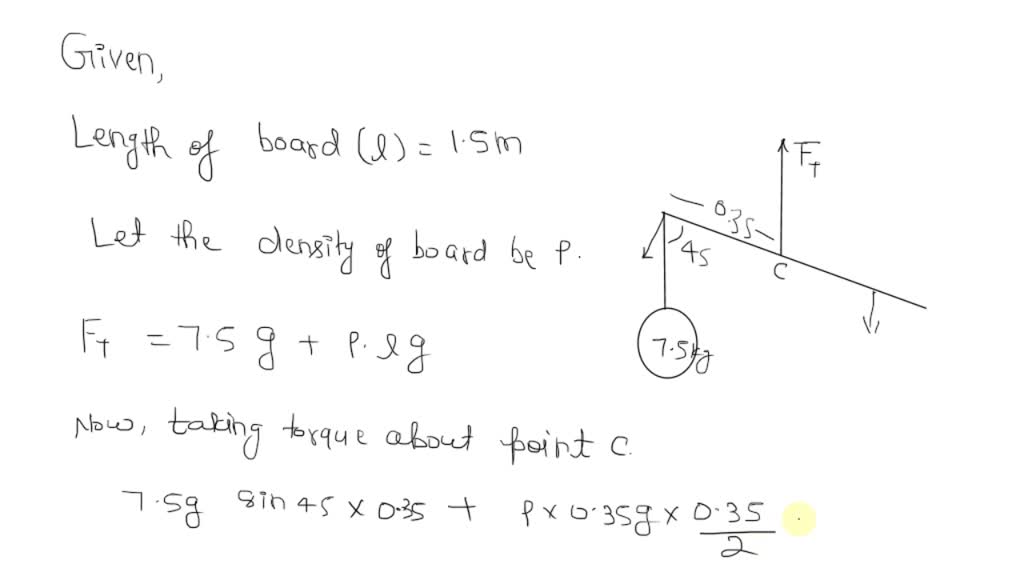 Given,
Length of board (l) = 1.5m
Let the density of board be P.
F_T = 7.5 g + P. l g
Now, taking torque about point C.
7.5g sin 45 × 0.35 + P × 0.35g × 0.35/2
F_T
0.35
45
C
7.5kg